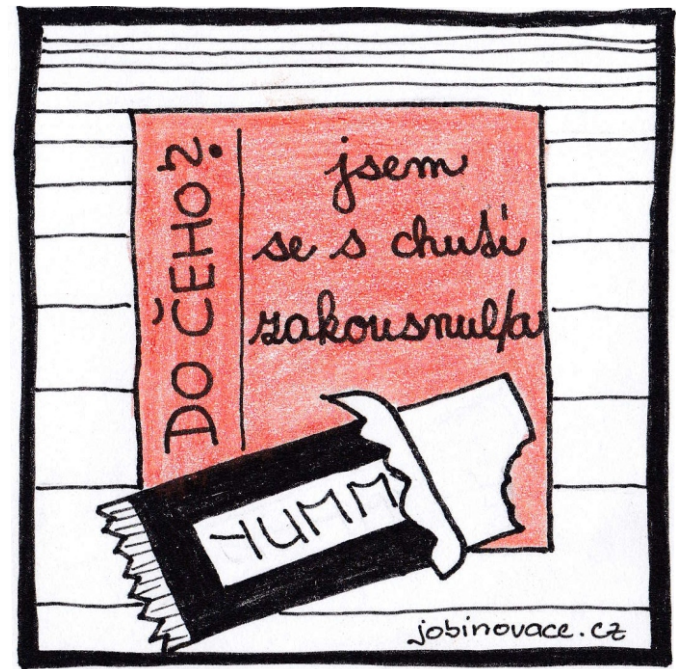 DO ČEHO?
jsem
se s chutí
zakousnul/a
YUMM
jobinovace.cz